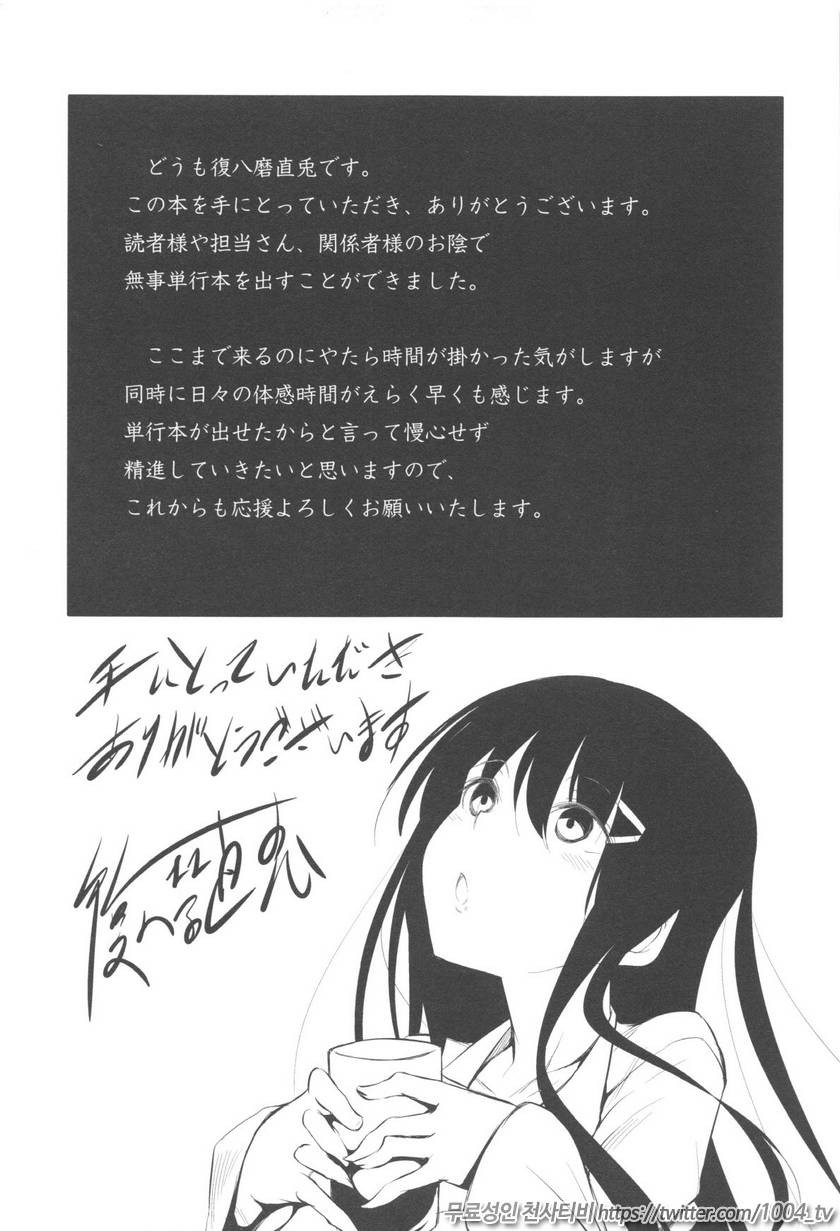 どうも復八磨直兎です。
この本を手にとっていただき、ありがとうございます。
読者様や担当さん、関係者様のお陰で
無事単行本を出すことができました。
ここまで来るのにやたら時間が掛かった気がしますが
同時に日々の体感時間がえらく早くも感じます。
単行本が出せたからと言って慢心せず
精進していきたいと思いますので、
これからも応援よろしくお願いいたします。
手にとっていただき
ありがとうございます
무료성인 천사티비 https://twitter.com/1004_tv